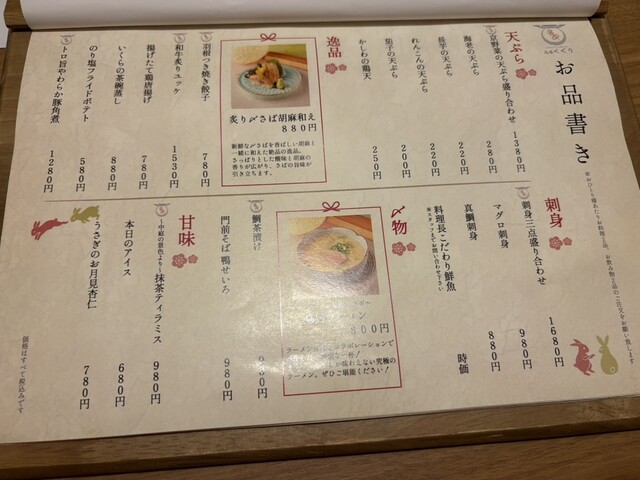 お品書き
※おひとり様あたりお料理二品、お飲み物一品のご注文をお願い致します
天ぷら
京野菜の天ぷら盛り合わせ 1380円
海老の天ぷら 220円
長芋の天ぷら 220円
れんこんの天ぷら 220円
茄子の天ぷら 200円
かしわの鶏天 250円
逸品
炙り〆さば胡麻和え
880円
新鮮な〆さばを香ばしい胡麻と
一緒に和えた絶品の逸品。
さっぱりとした酸味と胡麻の
香りが広がり、さばの旨味が
引き立ちます。
羽根つき焼き餃子 780円
和牛炙りユッケ 1530円
揚げたて鶏唐揚げ 780円
いくらの茶碗蒸し 880円
のり塩フライドポテト 580円
トロ旨やわらか豚角煮 1280円
刺身
刺身三点盛り合わせ 1680円
マグロ刺身 980円
真鯛刺身 880円
料理長こだわり鮮魚 時価
※スタッフまでお問い合わせ下さい
〆物
800円
ラーメン
コラボレーションで
究極の
ラーメン。ぜひご堪能ください！
鯛茶漬け
門前そば 鴨せいろ 980円
甘味
～中庭の景色より～抹茶ティラミス 980円
本日のアイス 680円
うさぎのお月見杏仁 780円
価格はすべて税込みです